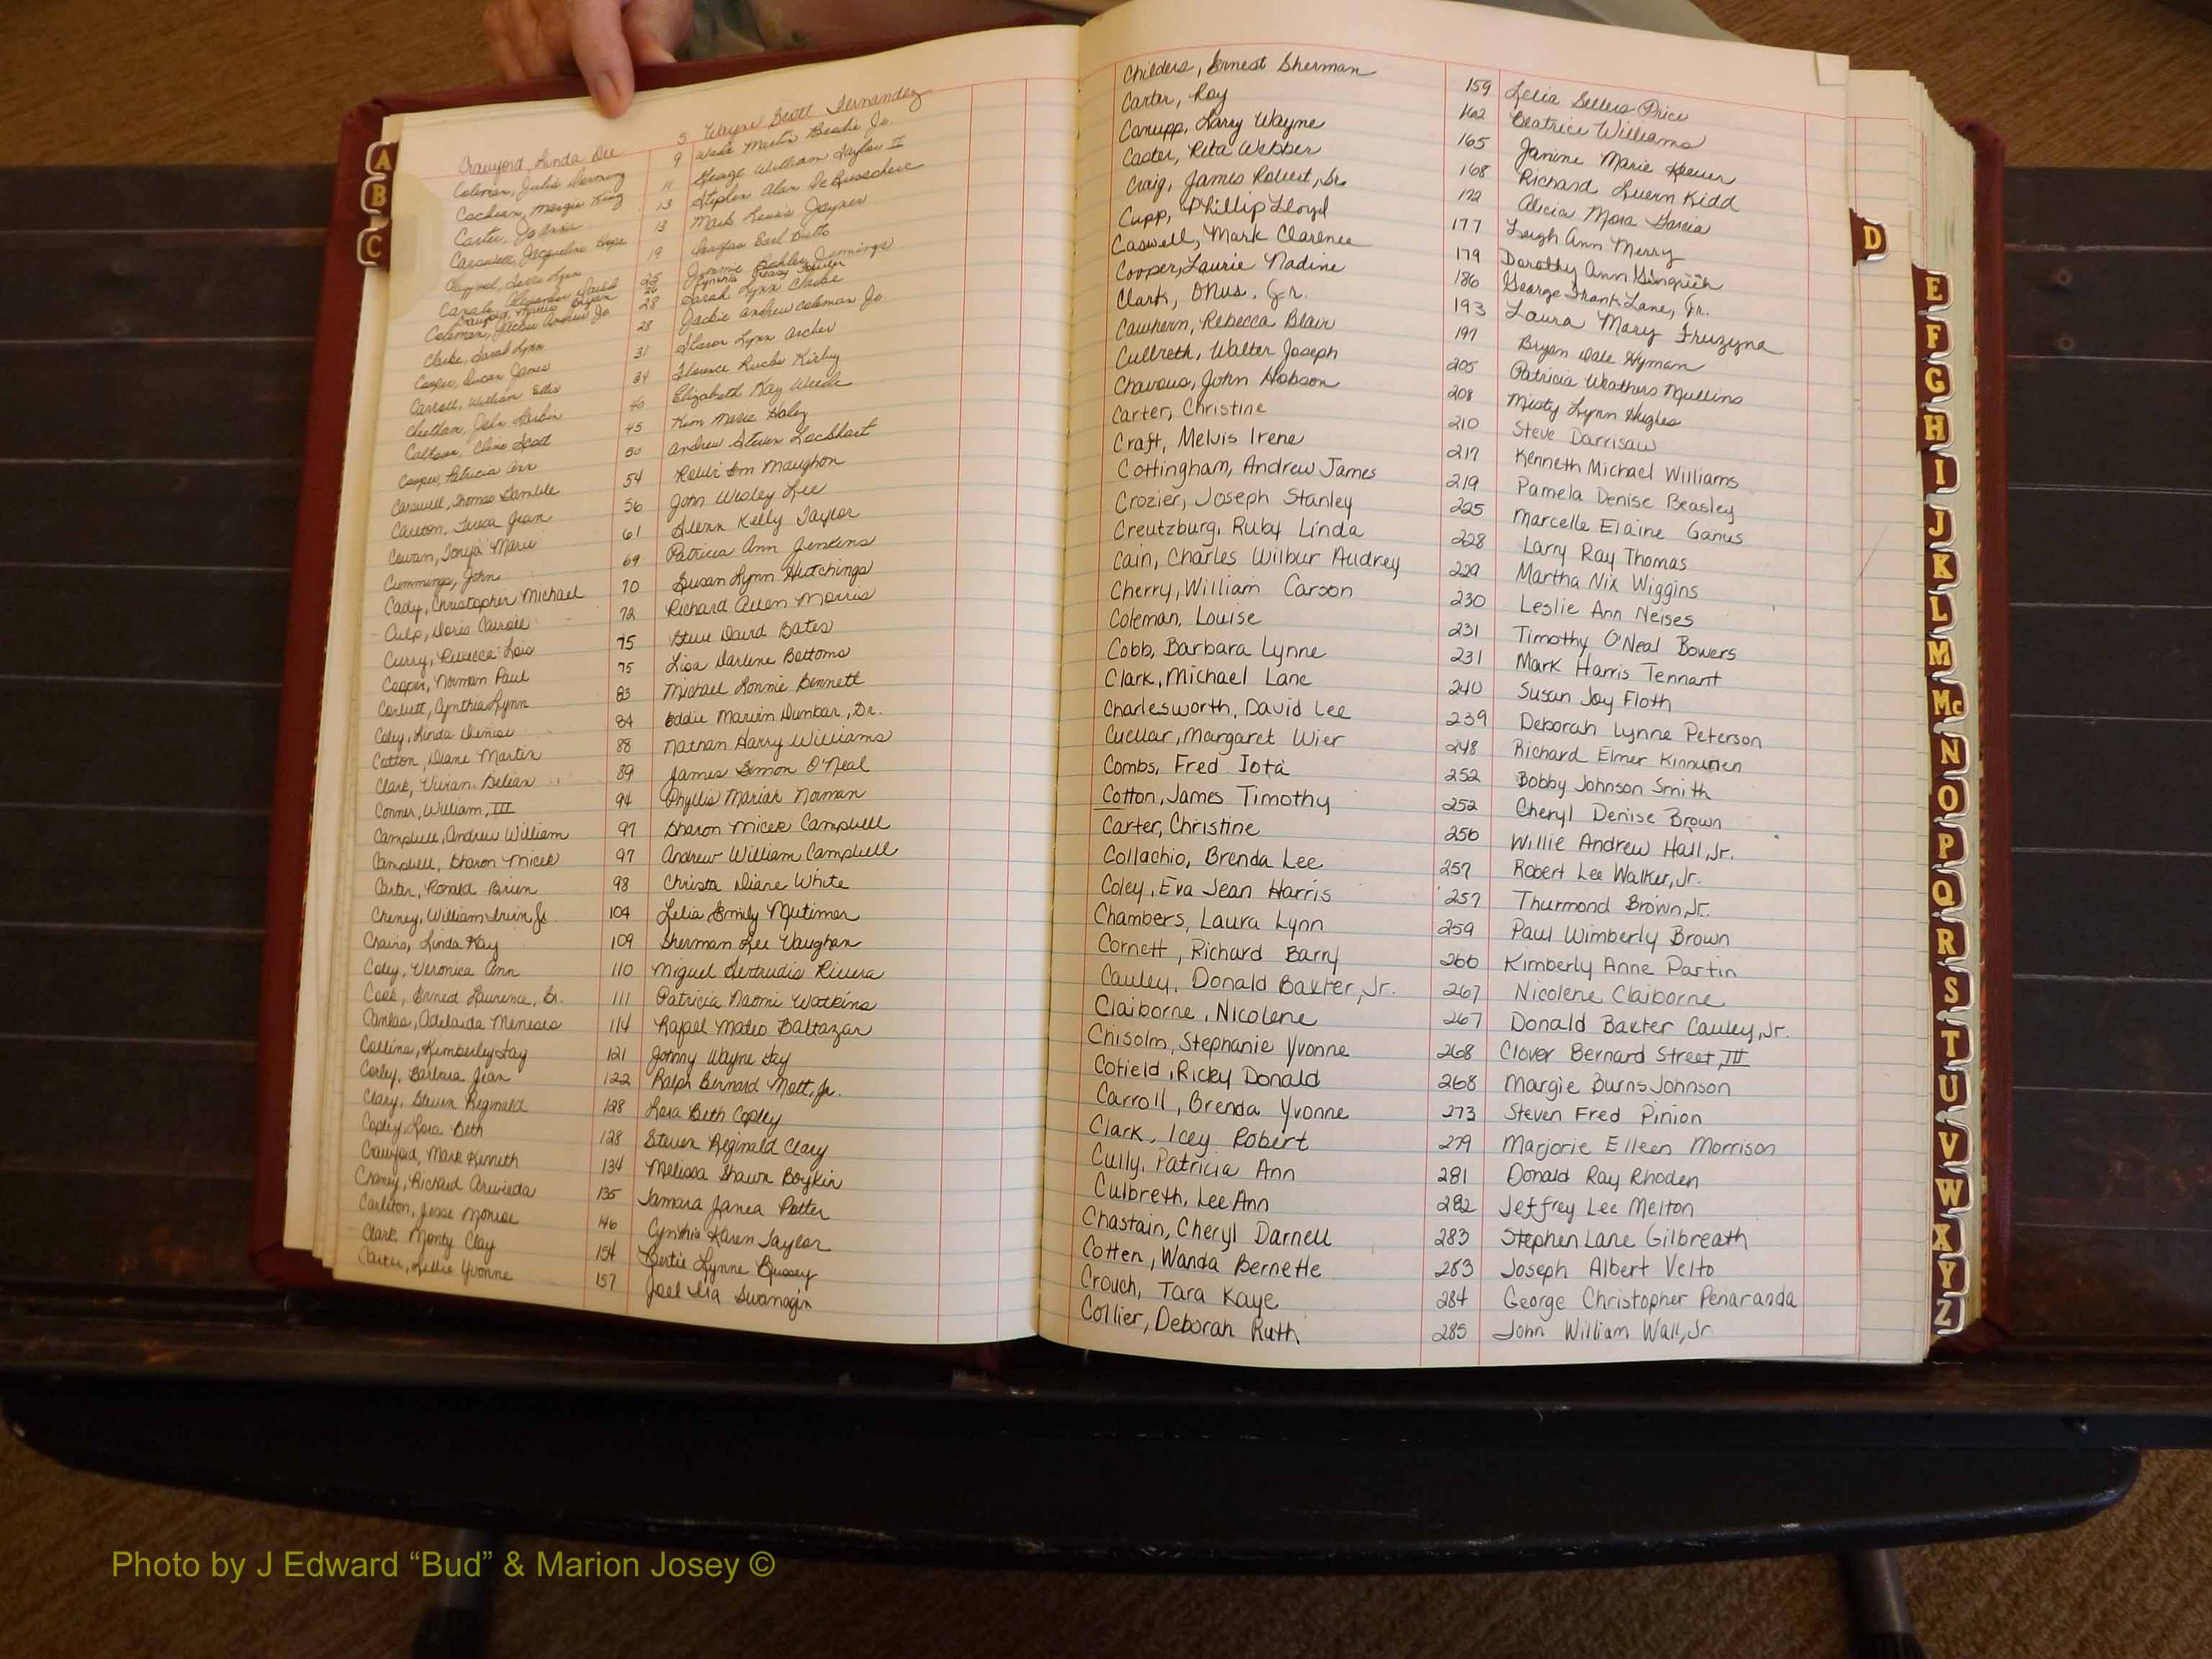 Crawford, Linda Dee 5 Wayne Scott Fernandez
Coleman, Julie 9 Wade Martin Beadie Jr.
Cochran, Margie King 11 George William Taylor II
Carter, Jo Annie 13 Stephen Alan DeBusschere
Carswell, Jacqueline Hope 13 Mark Lewis Joyner
19 Douglas Earl Butts
Canale, Alexander David 25 Jimmie Bohler Jennings
Crawford, Marcus Bryan 26
Coleman, Jackie Andrew Jr 28 Sarah Lynn Clarke
Clarke, Sarah Lynn 28 Jackie Andrew Coleman Jr
Cooper, James 31 Sharon Lynn Archer
Carroll, William Ellis 34 Florence Rucks Kirby
Cheatham, John Larkin 40 Elizabeth Kay Weeks
Calhoun, Cline Scott 45 Kim Marie Haley
Cooper, Patricia Ann 50 Andrew Steven Lockhart
Carswell, Thomas Gamble 54 Maughon
Carlton, Teresa Jean 56 John Wesley Lee
Cowan, Tonya Marie 61 Glenn Kelly Taylor
Cummings, John 69 Patricia Ann Jenkins
Cady, Christopher Michael 70 Susan Lynn Hutchings
Culp, Doris Carroll 72 Richard Allen Morris
Curry, Rebecca Lois 75 Steve David Bates
Cooper, Norman Paul 75 Lisa Darlene Bottoms
Corbett, Cynthia Lynn 83 Michael Lonnie Bennett
Coley, Linda Denise 84 Eddie Marvin Dunbar, Sr.
Cotton, Diane Martin 88 Nathan Harry Williams
Clark, Vivian 89 James Simon O'Neal
Conner, William, III 94 Phyllis Mariah Norman
Campbell, Andrew William 97 Sharon Micek Campbell
Campbell, Sharon Micek 97 Andrew William Campbell
Carter, Ronald Brien 98 Christa Diane White
Cheney, William Irvin, Jr. 104 Lelia Emily Mutimer
Chairs, Linda Kay 109 Sherman Lee Vaughan
Coley, Veronica Ann 110 Miguel Gertrudis Rivera
Cook, Ernest Laurence, Sr. 111 Patricia Naomi Watkins
Canlas, Adelaida Meneses 114 Rafael Mateo Baltazar
Collins, Kimberly Fay 121 Johnny Wayne Fay
Corley, Barbara Jean 122 Ralph Bernard Mott, Jr.
Clary, Steven Reginald 128 Lora Beth Copley
Copley, Lora Beth 128 Steven Reginald Clary
Crawford, Mark Kenneth 134 Melissa Shawn Boykin
Chaney, Richard 135 Tamara Janea Potter
Carlton, Jesse Monroe 146 Cynthia Karen Taylor
Clark, Monty Clay 154 Bertie Lynne Bussey
Carter, Lillie Yvonne 157 Joel Ira Swanagin
Childers, Ernest Sherman 159 Lelia Sellers Price
Carter, Roy 162 Beatrice Williams
Canupp, Larry Wayne 165 Janine Marie
Caster, Rita Webber 168 Richard Luern Kidd
Craig, James Robert, Sr. 172 Alicia Mora Garcia
Cupp, Phillip Lloyd 177 Leigh Ann Merry
Caswell, Mark Clarence 179 Dorothy Ann Gingrich
Cooper, Laurie Nadine 186 George Frank Lane, Jr.
Clark, Onus, Jr. 193 Laura Mary Fruzyna
Cawhern, Rebecca Blair 197 Bryan Dale Hyman
Culbreth, Walter Joseph 205 Patricia Weathers Mullins
Chavous, John Hobson 208 Misty Lynn Hughes
Carter, Christine 210 Steve Darrisaw
Craft, Melvis Irene 217 Kenneth Michael Williams
Cottingham, Andrew James 219 Pamela Denise Beasley
Crozier, Joseph Stanley 225 Marcelle Elaine Ganus
Creutzburg, Ruby Linda 228 Larry Ray Thomas
Cain, Charles Wilbur Audrey 229 Martha Nix Wiggins
Cherry, William Carson 230 Leslie Ann Neises
Coleman, Louise 231 Timothy O'Neal Bowers
Cobb, Barbara Lynne 231 Mark Harris Tennant
Clark, Michael Lane 240 Susan Joy Floth
Charlesworth, David Lee 239 Deborah Lynne Peterson
Cuellar, Margaret Wier 248 Richard Elmer Kinnunen
Combs, Fred Iota 252 Bobby Johnson Smith
Cotton, James Timothy 252 Cheryl Denise Brown
Carter, Christine 256 Willie Andrew Hall, Jr.
Collachio, Brenda Lee 257 Robert Lee Walker, Jr.
Coley, Eva Jean Harris 257 Thurmond Brown, Jr.
Chambers, Laura Lynn 259 Paul Wimberly Brown
Cornett, Richard Barry 266 Kimberly Anne Partin
Cauley, Donald Baxter, Jr. 267 Nicolene Claiborne
Claiborne, Nicolene 267 Donald Baxter Cauley, Jr.
Chisolm, Stephanie Yvonne 268 Clover Bernard Street, III
Cofield, Ricky Donald 268 Margie Burns Johnson
Carroll, Brenda Yvonne 273 Steven Fred Pinion
Clark, Icey Robert 279 Marjorie Eileen Morrison
Cully, Patricia Ann 281 Donald Ray Rhoden
Culbreth, Lee Ann 282 Jeffrey Lee Melton
Chastain, Cheryl Darnell 283 Stephen Lane Gilbreath
Cotten, Wanda Bernette 283 Joseph Albert Velto
Crouch, Tara Kaye 284 George Christopher Penaranda
Collier, Deborah Ruth 285 John William Wall, Jr
A
B
C
D
E
F
G
H
I
J
K
L
M
Mc
N
O
P
Q
R
S
T
U
V
W
X
Y
Z
Photo by J Edward “Bud” & Marion Josey ©